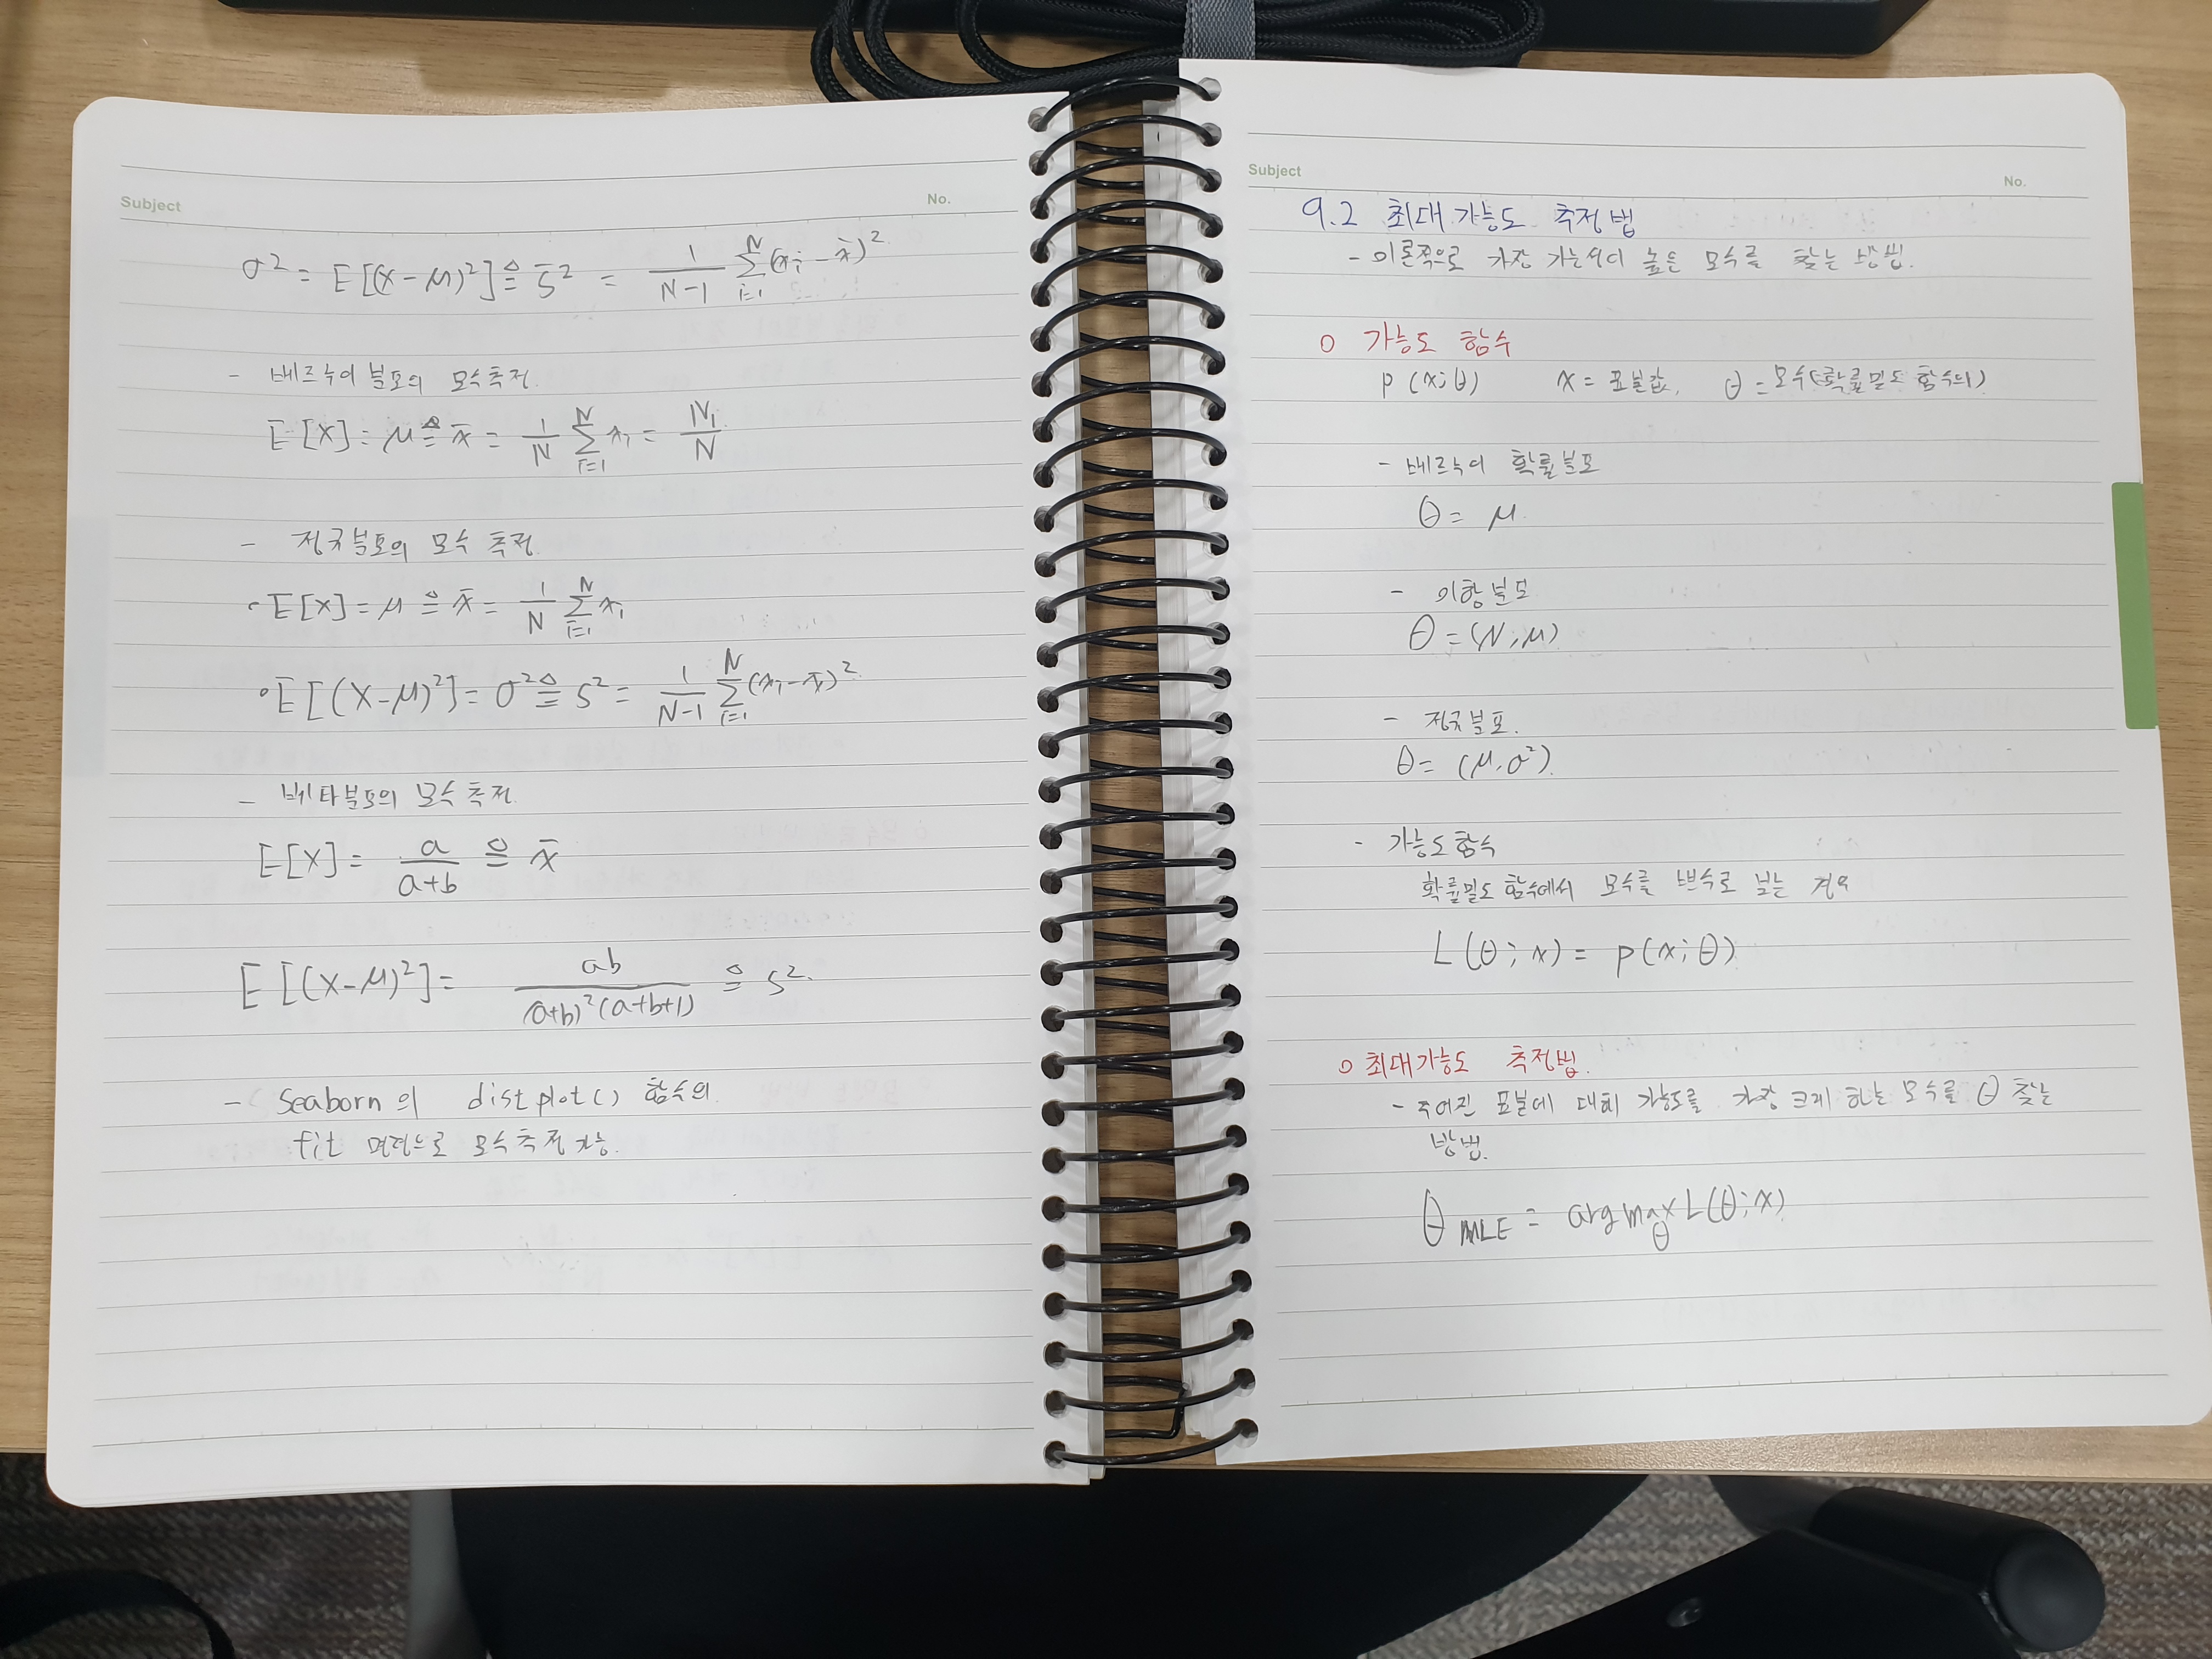 Subject No.
σ² = E[(x-μ)²] ≙ s̄² = 1/(N-1) Σ_{i=1}^{N} (x_i - x̄)²
- 베르누이 분포의 모수추정.
E[X] = μ ≙ x̄ = 1/N Σ_{i=1}^{N} x_i = N₁/N
- 정규분포의 모수 추정
• E[X] = μ ≙ x̄ = 1/N Σ_{i=1}^{N} x_i
• E[(X-μ)²] = σ² ≙ s² = 1/(N-1) Σ_{i=1}^{N} (x_i - x̄)².
- 베타분포의 모수 추정
E[X] = a/(a+b) ≙ x̄
E[(X-μ)²] = ab/((a+b)²(a+b+1)) ≙ s².
- Seaborn의 distplot() 함수의
fit 명령으로 모수추정 가능.
Subject No.
9.2 최대가능도 추정법
- 이론적으로 가장 가능성이 높은 모수를 찾는 방법.
o 가능도 함수
p(x;θ) x = 표본값, θ = 모수(확률밀도 함수의)
- 베르누이 확률분포
θ = μ.
- 이항분포
θ = (N, μ)
- 정규분포.
θ = (μ, σ²).
- 가능도함수
확률밀도 함수에서 모수를 변수로 보는 경우
L(θ; x) = p(x; θ)
o 최대가능도 추정법.
- 주어진 표본에 대해 가능도를 가장 크게 하는 모수를 θ 찾는
방법.
θ_MLE = arg max_θ L(θ; x)